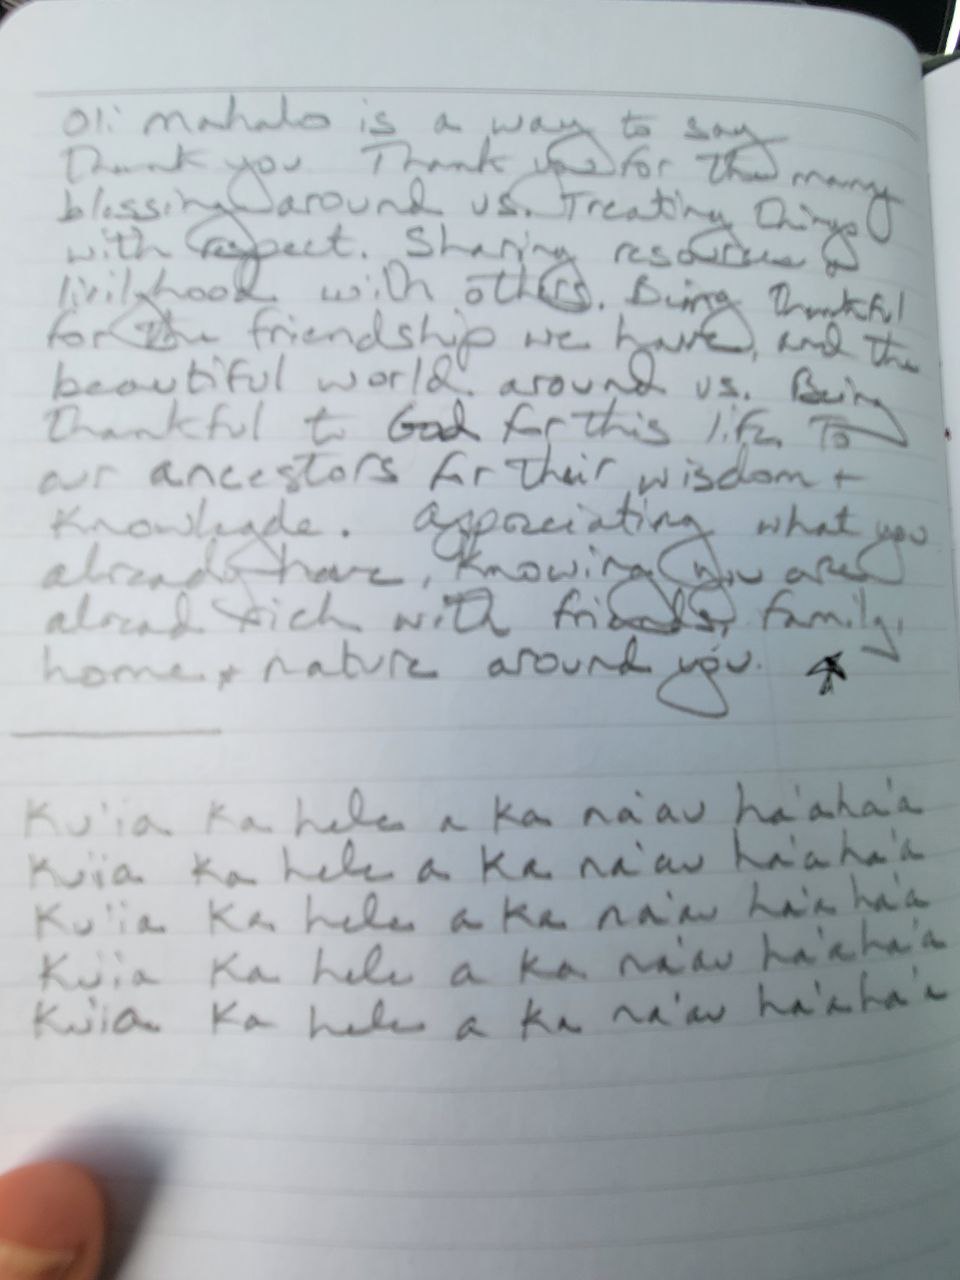 Oli mahalo is a way to say
Thank you. Thank you for the many
blessing around us. Treating things
with respect. Sharing resources &
livilyhood with others. Being thankful
for the friendship we have, and the
beautiful world around us. Being
thankful to God for this life, To
our ancestors for their wisdom +
Knowleade. Appreciating what you
already have, Knowing you are
alread rich with friends, family,
home + nature around you.
Ku'ia ka hele a ka na'au ha'aha'a
Ku'ia ka hele a ka na'au ha'aha'a
Ku'ia ka hele a ka na'au ha'aha'a
Ku'ia ka hele a ka na'au ha'aha'a
Ku'ia ka hele a ka na'au ha'aha'a